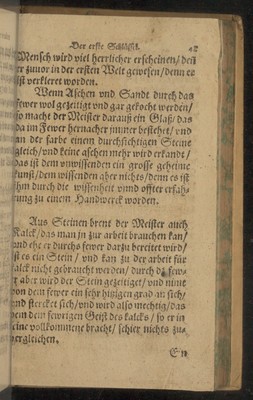 Der erste Schlüssel. 42
Mensch wird viel herrlicher erscheinen/ deñ
er zuvor in der ersten Welt gewesen/ denn es
ist verkleret worden.
Wenn Aschen vnd Sandt durch das
fewer wol gezeitigt vnd gar gekocht werden/
so macht der Meister darauß ein Glaß/ das
da im Fewer hernacher immer bestehet/ vnd
an der farbe einem durchsichtigen Steine
gleich/ vnd keine aschen mehr wird erkandt/
das ist dem vnwissenden ein grosse geheime
kunst/ dem wissenden aber nichts/ denn es ist
ihm durch die wissenheit vnnd offter erfah-
rung zu einem Handwerck worden.
Aus Steinen brent der Meister auch
Kalck/ das man jn zur arbeit brauchen kan/
und ehe er durchs fewer darzu bereitet wird/
ist es ein Stein/ vnd kan zu der arbeit für
kalck nicht gebraucht werden/ durch dz few-
er aber wird der Stein gezeitiget/ vnd nimt
von dem fewer ein sehr hitzigen grad an sich/
vnd stercket sich/ vnd wird also mechtig/ das
dem fewrigen Geist des kalcks/ so er in
eine vollkommene bracht/ schier nichts zu-
vergleichen.